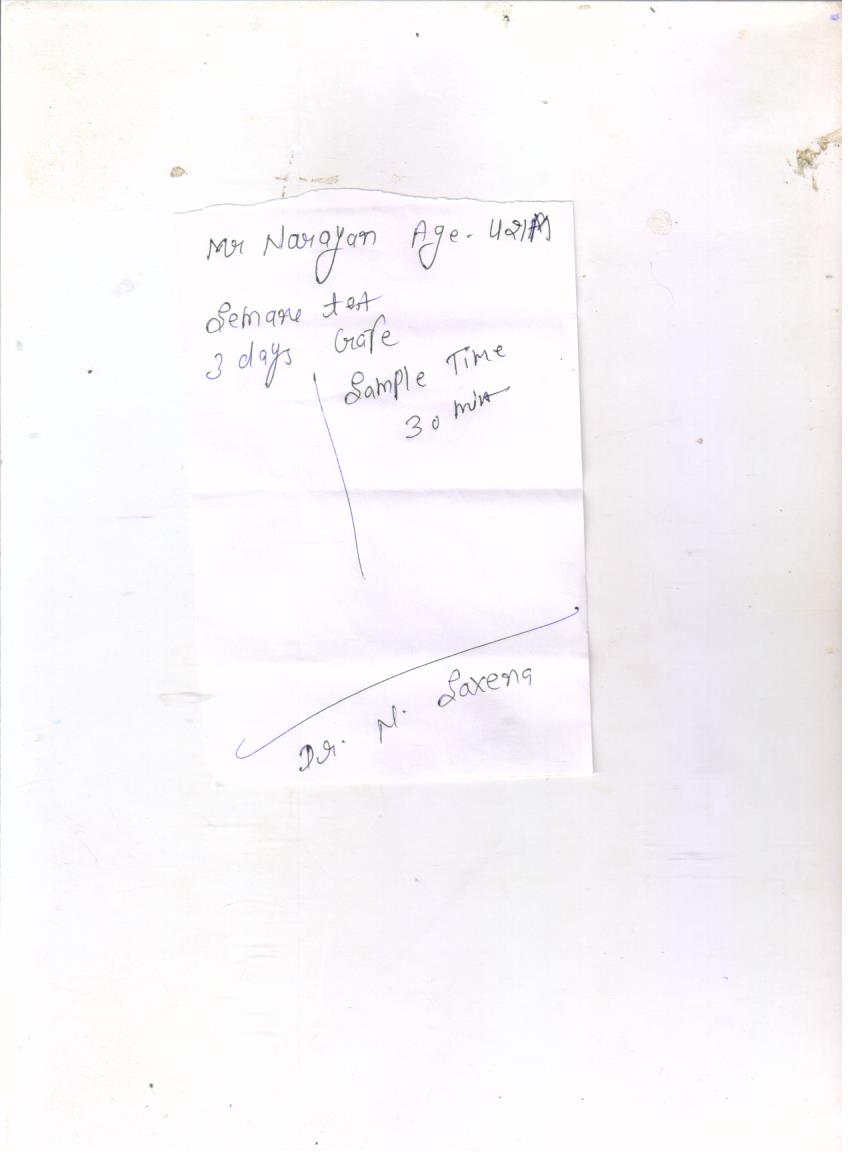 Mr Narayan Age. 42/M
Semane test
3 days Gafe
Sample Time
30 min
Dr. N. Saxena